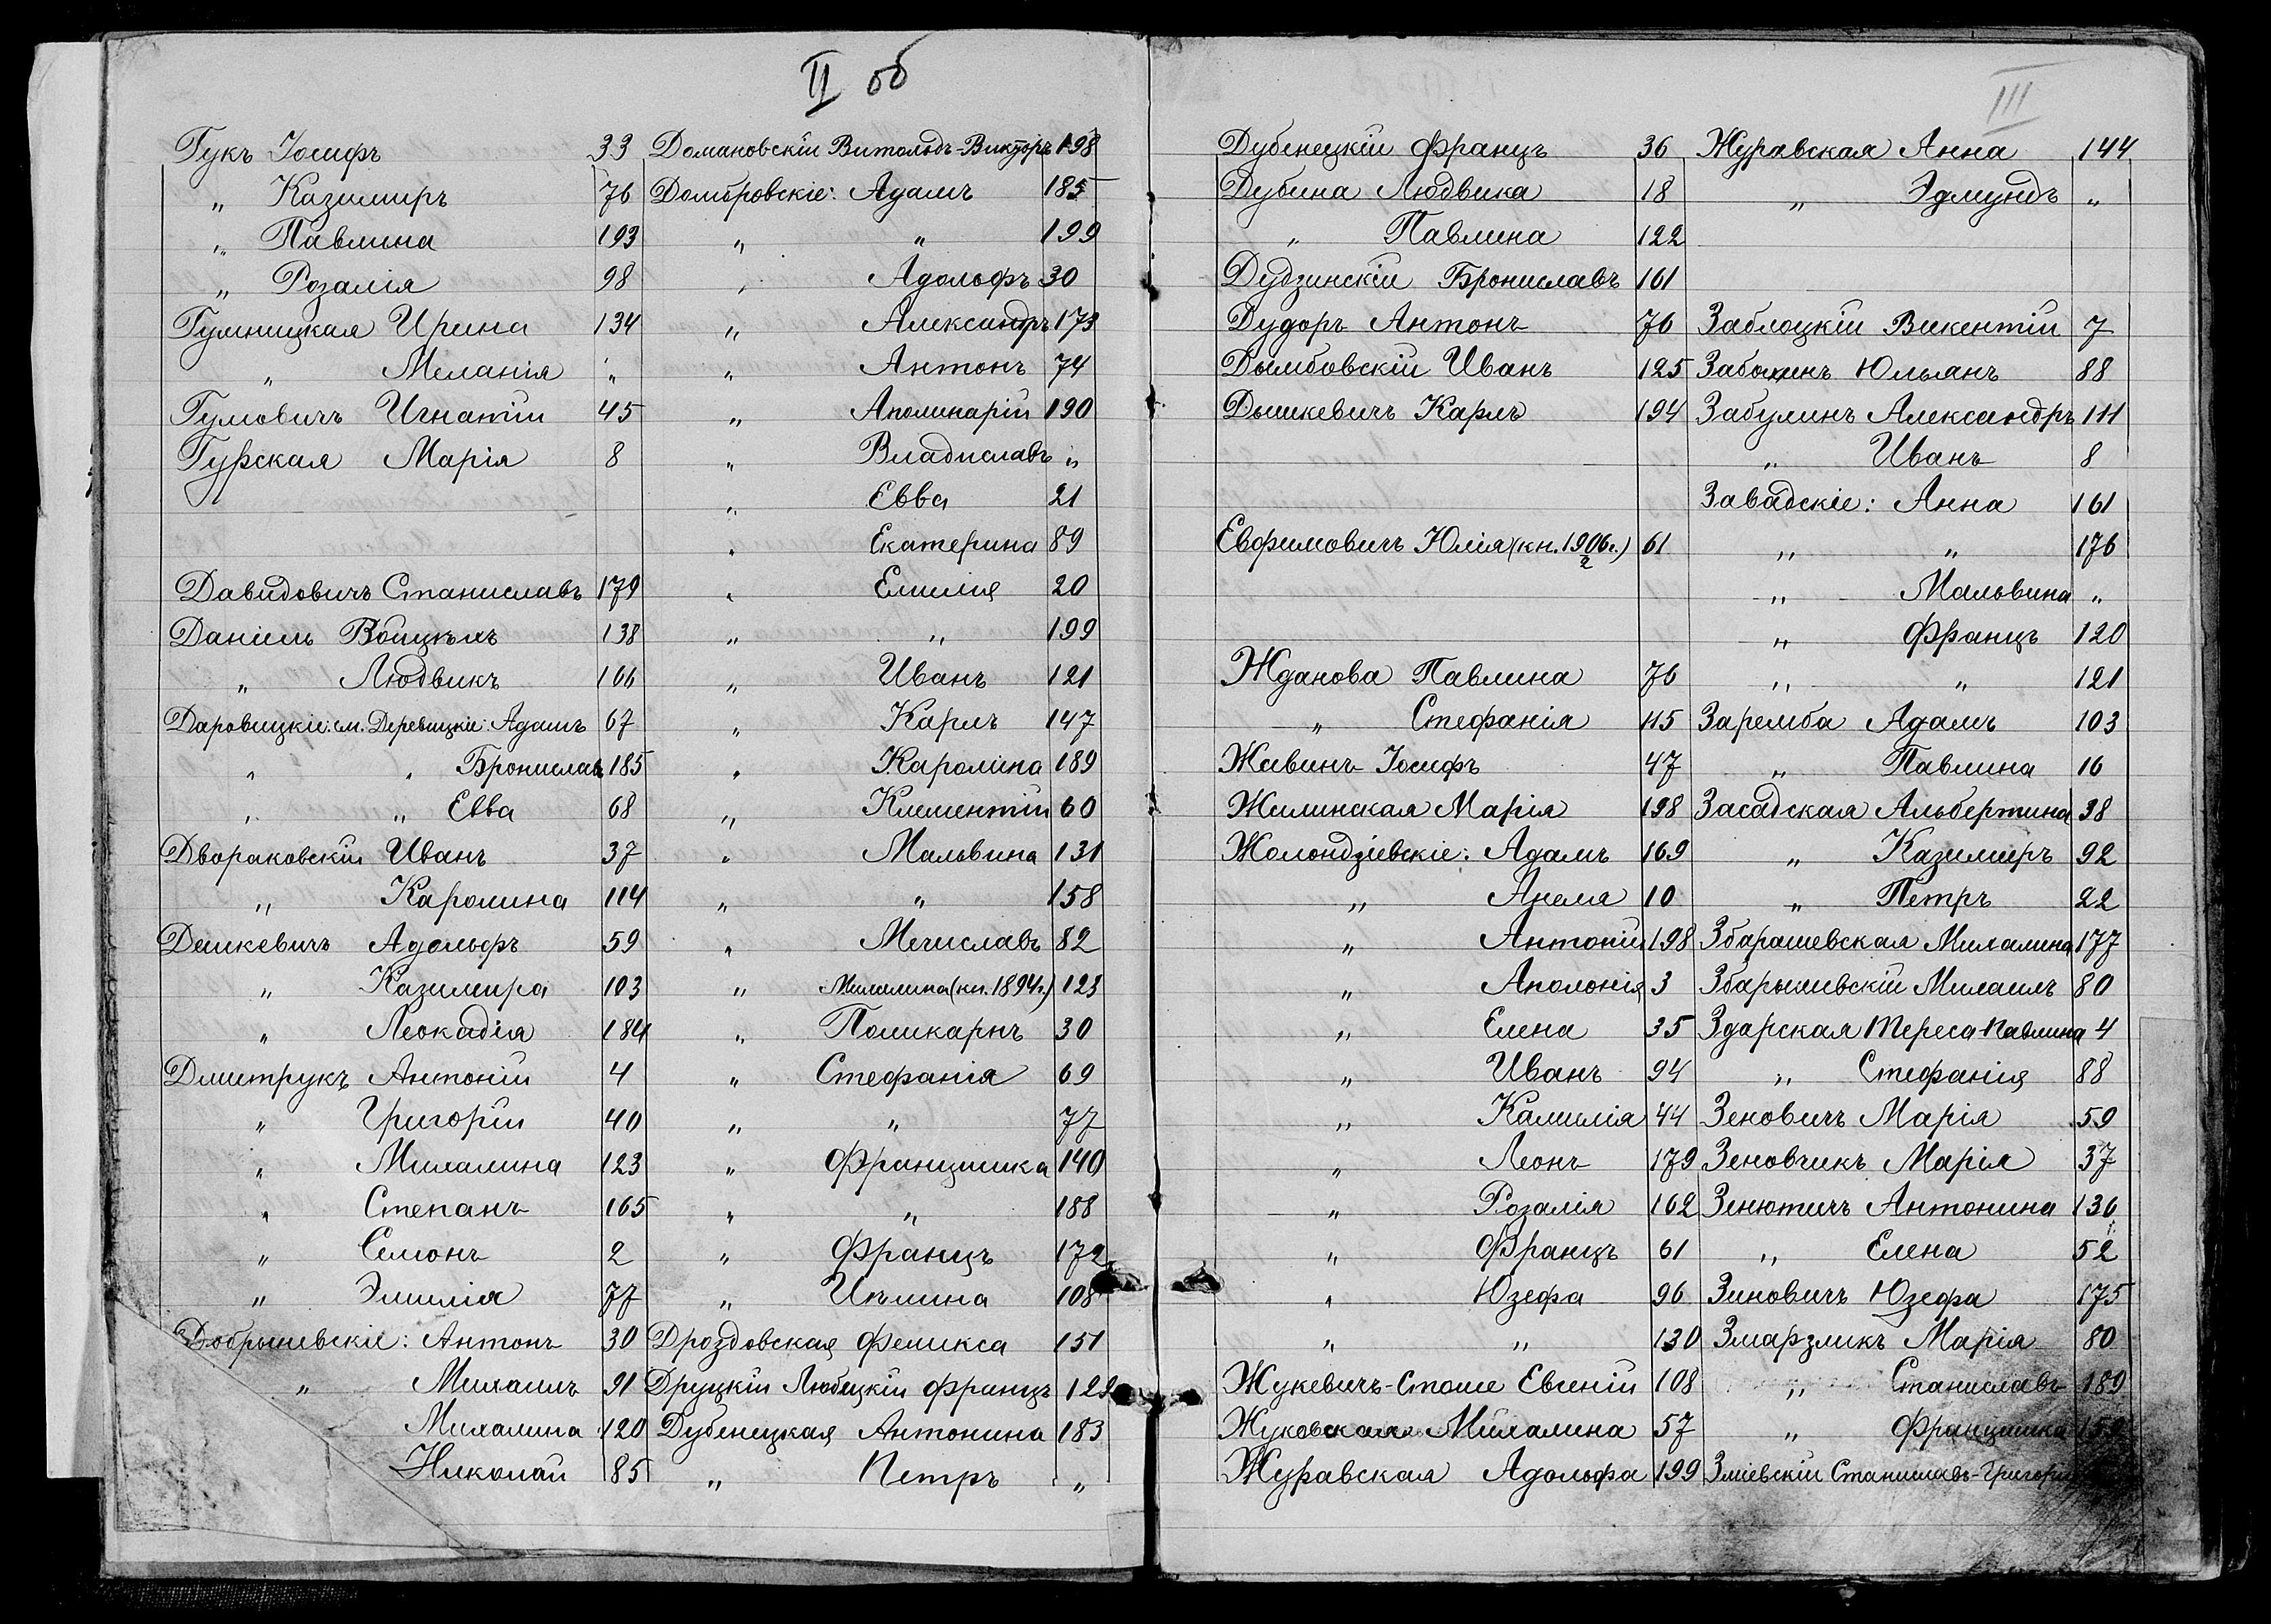 II об
Гукъ Іосифъ 33
„ Казимиръ 76
„ Павлина 193
„ Розалія 98
Гумницкая Ирина 134
„ Меланія „
Гумовичъ Игнатій 45
Гурская Марія 8
Давидовичъ Станиславъ 179
Даніель Войцѣхъ 138
„ Людвикъ 166
Даровицкіе: см. Деревицкіе: Адамъ 67
„ „ Брониславъ 185
„ „ Евва 68
Двораковскій Иванъ 37
„ Каролина 114
Дешкевичъ Адольфъ 59
„ Казимира 103
„ Леокадія 184
Дмитрукъ Антоній 4
„ Григорій 40
„ Михалина 123
„ Степанъ 165
„ Семонъ 2
„ Эмилія 77
Добрыневскіе: Антонъ 30
„ Михаилъ 91
Михалина 120
Николай 85
Домановскій Витольдъ-Викторъ 198
Домбровскіе: Адамъ 185
„ „ 199
„ Адольфъ 30
„ Александръ 173
„ Антонъ 74
„ Аполинарій 190
„ Владиславъ „
„ Евва 21
„ Екатерина 89
„ Емилія 20
„ „ 199
„ Иванъ 121
„ Карлъ 147
„ Каролина 189
„ Климентій 60
„ Мальвина 131
„ „ 158
„ Мечиславъ 82
„ (кн. 1894 г.) 123
„ Поликарпъ 30
„ Стефанія 69
„ „ 77
„ Францишка 140
„ „ 188
„ Францъ 172
„ 108
Дроздовская Феликса 151
Друцкій Любецкій Францъ
Дубенецкая Антонина 183
„ Петръ „
III
Дубенецкій Францъ 36
Дубина Людвика 18
„ Павлина 122
Дудзинскій Брониславъ 161
Дудоръ Антонъ 76
Дымбовскій Иванъ 125
Дышкевичъ Карлъ 194
Евфимовичъ Юлія (кн. 1906 г. 2) 61
Жданова Павлина 76
„ Стефанія 115
Живинъ Іосифъ 47
Жилинская Марія 198
Жолондзіевскіе: Адамъ 169
„ Анеля 10
„ Антоній 198
„ Аполонія 3
„ Елена 35
„ Иванъ 94
„ Камилія 44
„ Леонъ 179
„ Розалія 162
„ Францъ 61
„ Юзефа 96
„ „ 130
Жукевичъ-Стоше Евгеній 108
Жуковская Михалина 57
Журавская Адольфа 199
Журавская Анна 144
„ Эдмундъ „
Заблоцкій Викентій 7
Юльянъ 88
Забулинъ Александръ 111
„ Иванъ 8
Завадскіе: Анна 161
„ „ 176
„ Мальвина „
„ Францъ 120
„ „ 121
Заремба Адамъ 103
„ Павлина 16
Засадская Альбертина 38
„ Казимиръ 92
„ Петръ 22
Збарашевская Михалина 177
Збарышевскій Михаилъ 80
Здарская Тереса Павлина 4
„ Стефанія 88
Зеновичъ Марія 59
Зеновчикъ Марія 37
Зенютичъ Антонина 136
„ Елена 52
Зиновичъ Юзефа 175
Змарзликъ Марія 80
„ Станиславъ 189
„ Францишка
Зміевскій Станиславъ-Григорій